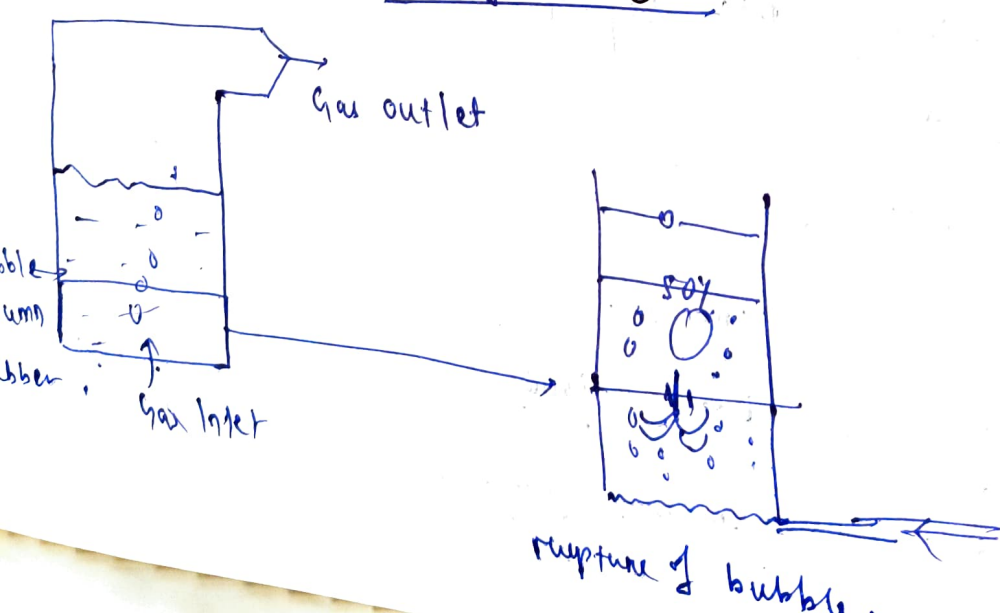 Gas outlet
50%
umn
bber
Gas Inlet
rupture of bubble